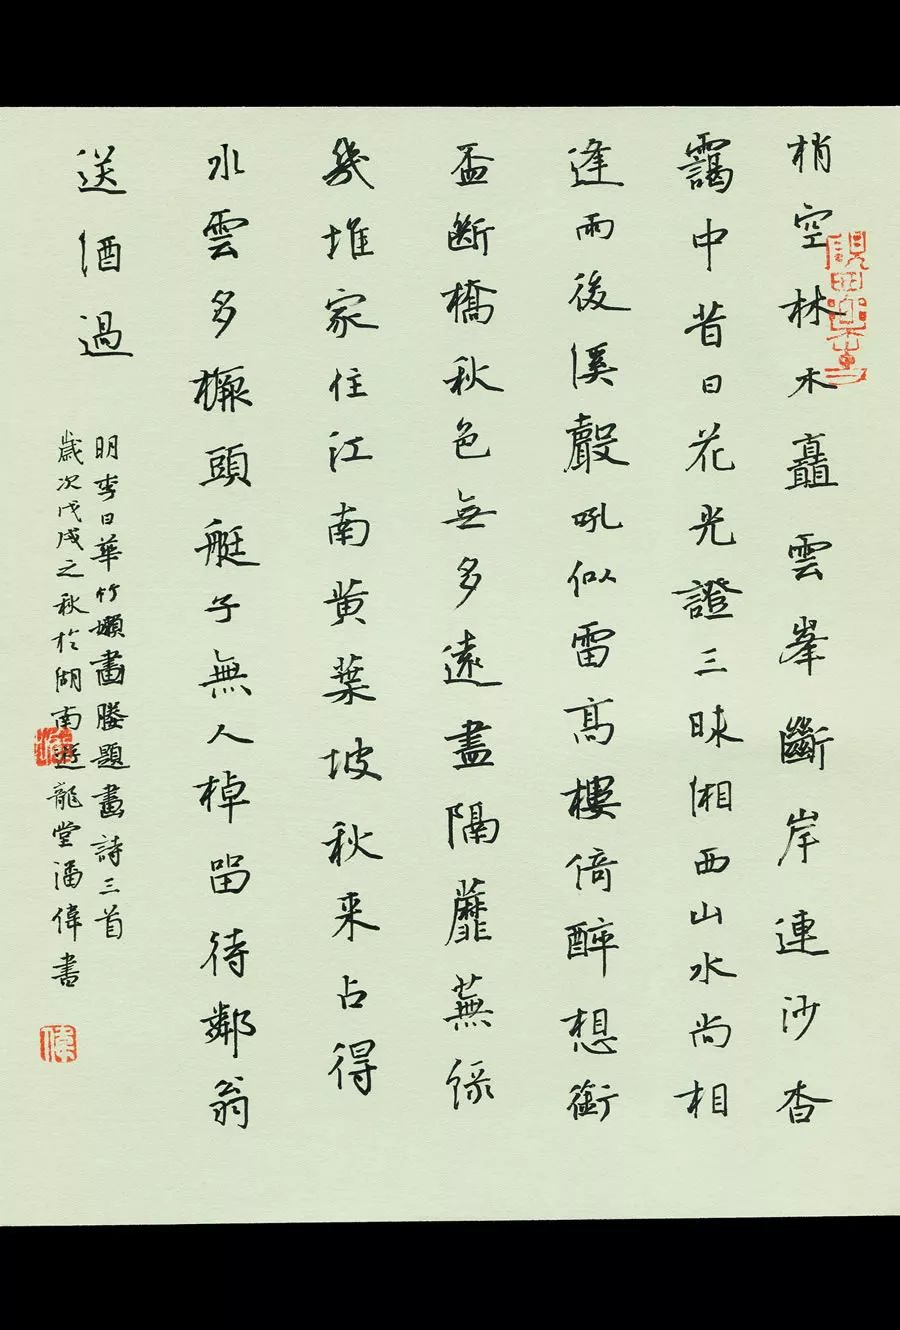 梢空林木矗雲峯斷岸連沙杳
靄中昔日花光證三昧湘西山水尚相
逢雨後溪聲吼似雷高樓倚醉想銜
盃斷橋秋色無多遠盡隔蘼蕪綠
幾堆家住江南黄葉坡秋来占得
水雲多橛頭艇子無人棹留待鄰翁
送酒過
明李日華竹嬾畫媵題畫詩三首
歲次戊戌之秋於湖南遊龍堂潘偉書
偉